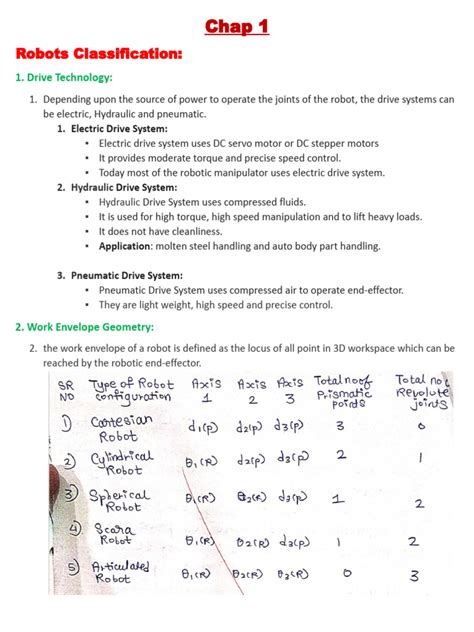 Chap 1
Robots Classification:
1. Drive Technology:
1. Depending upon the source of power to operate the joints of the robot, the drive systems can
be electric, Hydraulic and pneumatic.
1. Electric Drive System:
• Electric drive system uses DC servo motor or DC stepper motors
• It provides moderate torque and precise speed control.
• Today most of the robotic manipulator uses electric drive system.
2. Hydraulic Drive System:
• Hydraulic Drive System uses compressed fluids.
• It is used for high torque, high speed manipulation and to lift heavy loads.
• It does not have cleanliness.
• Application: molten steel handling and auto body part handling.
3. Pneumatic Drive System:
• Pneumatic Drive System uses compressed air to operate end-effector.
• They are light weight, high speed and precise control.
2. Work Envelope Geometry:
2. the work envelope of a robot is defined as the locus of all point in 3D workspace which can be
reached by the robotic end-effector.
SR NO Type of Robot configuration Axis 1 Axis 2 Axis 3 Total no of Prismatic points Total no of Revolute joints
1) Cartesian Robot d1(P) d2(P) d3(P) 3 0
2) Cylindrical Robot θ1(R) d2(P) d3(P) 2 1
3) Spherical Robot θ1(R) θ2(R) d3(P) 1 2
4) Scara Robot θ1(R) θ2(R) d3(P) 1 2
5) Articulated Robot θ1(R) θ2(R) θ3(R) 0 3